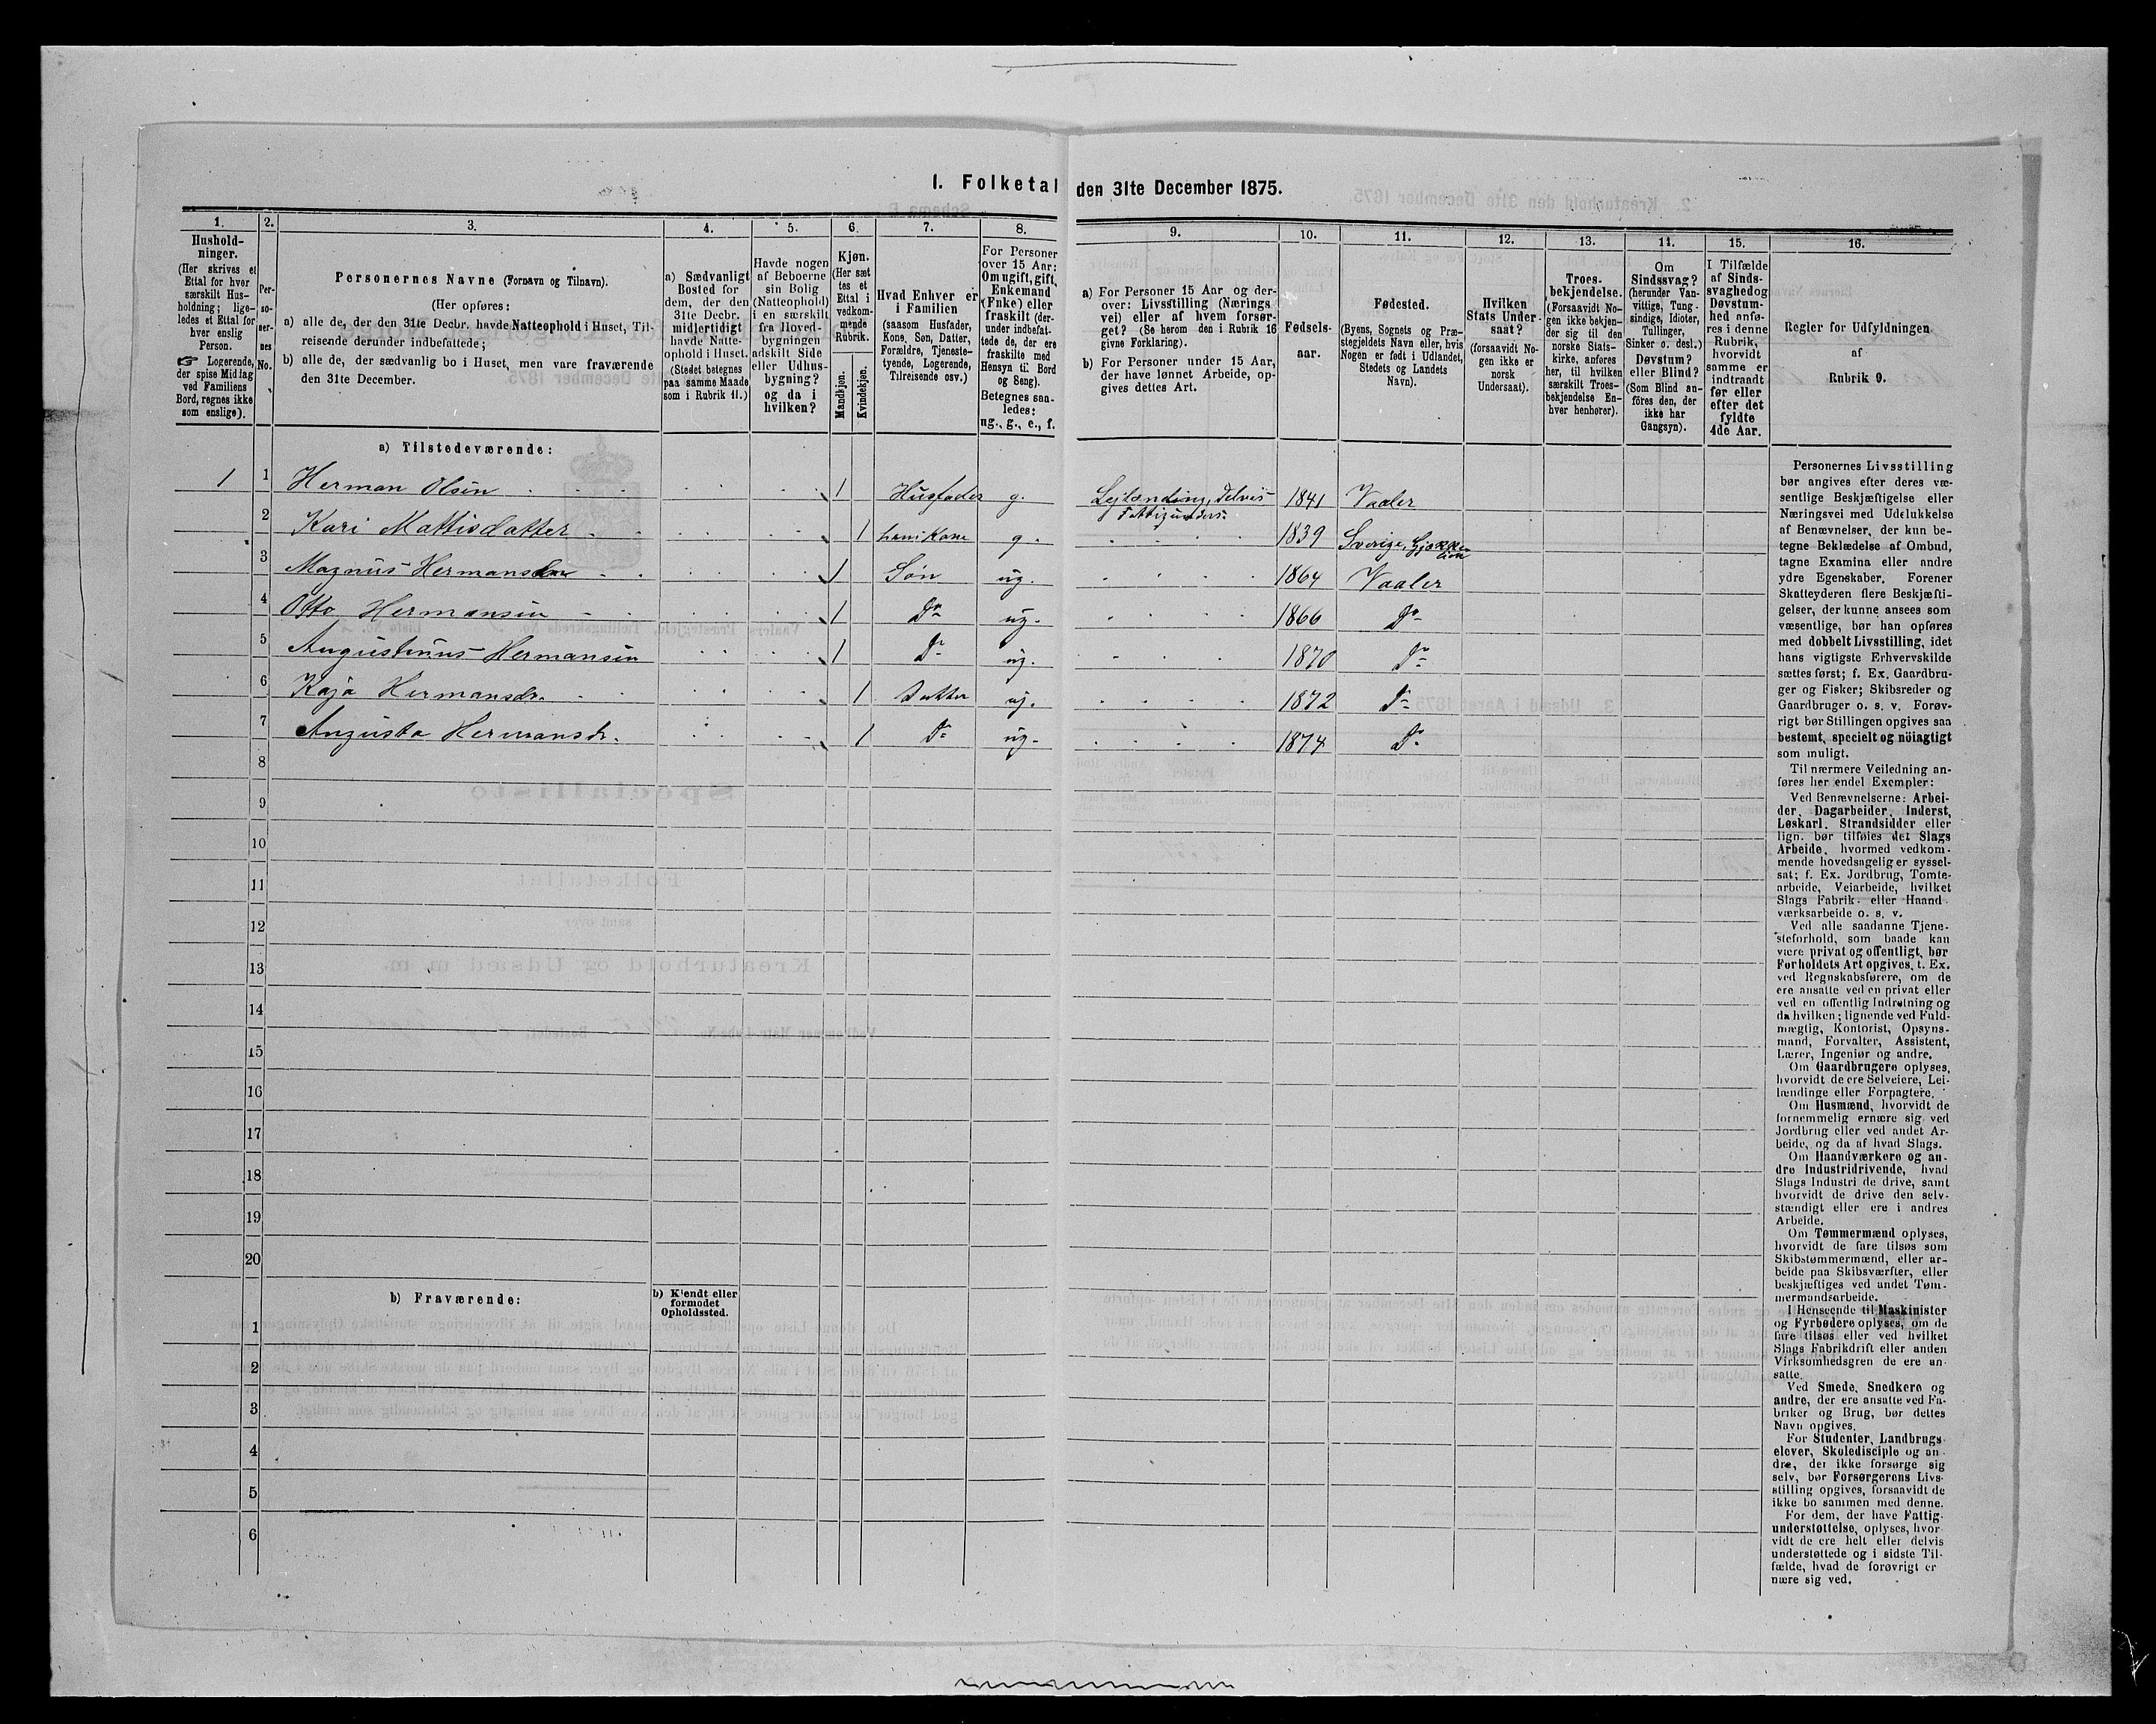 I. Folketal den 31te December 1875.
1.
Hushold-
ninger.
(Her skrives et
Ettal for hver
særskilt Hus-
holdning; lige-
ledes et Ettal for
hver enslig
Person.
☞ Logerende,
der spise Middag
ved Familiens
Bord, regnes ikke
som enslige).
2.
Per-
so-
ner-
nes
No.
3.
Personernes Navne (Fornavn og Tilnavn).
(Her opføres:
a) alle de, der den 31te Decbr. havde Natteophold i Huset, Til-
reisende derunder indbefattede;
b) alle de, der sædvanlig bo i Huset, men vare fraværende
den 31te December.
4.
a) Sædvanligt
Bosted for
dem, der den
31te Decbr.
midlertidigt
havde Natte-
ophold i Huset.
(Stedet betegnes
paa samme Maade
som i Rubrik 11.)
5.
Havde nogen
af Beboerne
sin Bolig
(Natteophold)
i en særskilt
fra Hoved-
bygningen
adskilt Side
eller Udhus-
bygning?
og da i
hvilken?
6.
Kjøn.
(Her sæt
tes et
Ettal i
vedkom-
mende
Rubrik.
Mandkjøn.
Kvindekjøn.
7.
Hvad Enhver er
i Familien
(saasom Husfader,
Kone, Søn, Datter,
Forældre, Tjeneste-
tyende, Logerende,
Tilreisende osv.)
8.
For Personer
over 15 Aar:
Om ugift, gift,
Enkemand
(Enke) eller
fraskilt (der-
under indbefat-
tede de, der ere
fraskilte med
Hensyn til Bord
og Seng).
Betegnes saa-
ledes:
ug., g., e., f.
9.
a) For Personer 15 Aar og der-
over: Livsstilling (Nærings
vei) eller af hvem forsør-
get? (Se herom den i Rubrik 16
givne Forklaring).
b) For Personer under 15 Aar,
der have lønnet Arbeide, op-
gives dettes Art.
10.
Fødsels-
aar.
11.
Fødested.
(Byens, Sognets og Præ-
stegjeldets Navn eller, hvis
Nogen er født i Udlandet,
Stedets og Landets
Navn).
12.
Hvilken
Stats Under-
saat?
(forsaavidt No-
gen ikke er
norsk
Undersaat).
13.
Troes-
bekjendelse.
(Forsaavidt No-
gen ikke bekjen-
der sig til den
norske Stats-
kirke, anføres
her, til hvilken
særskilt Troes-
bekjendelse En-
hver henhører).
14.
Om
Sindssvag?
(herunder Van-
vittige, Tung-
sindige, Idioter,
Tullinger,
Sinker o. desl.)
Døvstum?
eller Blind?
(Som Blind an-
föres den, der
ikke har
Gangsyn).
15.
I Tilfælde
af Sinds-
svaghed og
Døvstum-
hed anfø-
res i denne
Rubrik,
hvorvidt
samme er
indtraadt
før eller
efter det
fyldte
4de Aar.
16.
Regler for Udfyldningen
af
Rubrik 9.
a) Tilstedeværende:
1 1 Herman Olsen 1 Husfader g. Lejlænding, Delvis Fattigunders: 1841 Vaaler
2 Kari Mattisdatter 1 hans Kone g. 1839 Sverige,
3 Magnus Hermansen 1 Søn ug. 1864 Vaaler
4 Otto Hermansen 1 Do ug. 1866 Do
5 Augustinus Hermansen 1 Do ug. 1870 Do
6 Kaja Hermansdr. 1 Datter ug. 1872 Do
7 Augusta Hermansdr. 1 Do ug. 1874 Do
8
9
10
11
12
13
14
15
16
17
18
19
20
b) Fraværende:
b) Kjendt eller
formodet
Opholdssted.
1
2
3
4
5
6
Personernes Livsstilling
bør angives efter deres væ-
sentlige Beskjæftigelse eller
Næringsvei med Udelukkelse
af Benævnelser, der kun be-
tegne Beklædelse af Ombud,
tagne Examina eller andre
ydre Egenskaber. Forener
Skatteyderen flere Beskjæfti-
gelser, der kunne ansees som
væsentlige, bør han opføres
med dobbelt Livsstilling, idet
hans vigtigste Erhvervskilde
sættes først; f. Ex. Gaardbru-
ger og Fisker; Skibsreder og
Gaardbruger o. s. v. Forøv-
rigt bør Stillingen opgives saa
bestemt, specielt og nöiagtigt
som muligt.
Til nærmere Veiledning an-
føres her endel Exempler:
Ved Benævnelserne: Arbei-
der, Dagarbeider, Inderst,
Løskarl, Strandsidder eller
lign. bør tilføies det Slags
Arbeide, hvormed vedkom-
mende hovedsagelig er syssel-
sat; f. Ex. Jordbrug, Tomte-
arbeide, Veiarbeide, hvilket
Slags Fabrik- eller Haand-
værksarbeide o. s. v.
Ved alle saadanne Tjene-
steforhold, som baade kan
være privat og offentligt, bør
Forholdets Art opgives, f. Ex.
ved Regnskabsførere, om de
ere ansatte ved en privat eller
ved en offentlig Indretning og
da hvilken; lignende ved Fuld-
mægtig, Kontorist, Opsyns-
mand, Forvalter, Assistent,
Lærer, Ingeniør og andre.
Om Gaardbrugere oplyses,
hvorvidt de ere Selveiere, Lei-
lændinge eller Forpagtere.
Om Husmænd, hvorvidt de
fornemmelig ernære sig ved
Jordbrug eller ved andet Ar-
beide, og da af hvad Slags.
Om Haandværkere og an-
dre Industridrivende, hvad
Slags Industri de drive, samt
hvorvidt de drive den selv-
stændigt eller ere i andres
Arbeide.
Om Tømmermænd oplyses,
hvorvidt de fare tilsøs som
Skibstømmermænd, eller ar-
beide paa Skibsværfter, eller
beskjæftiges ved andet Tøm-
mermandsarbeide.
I Henseende til Maskinister
og Fyrbødere oplyses, om de
fare tilsøs eller ved hvilket
Slags Fabrikdrift eller anden
Virksomhedsgren de ere an-
satte.
Ved Smede, Snedkere og
andre, der ere ansatte ved Fa-
briker og Brug, bør dettes
Navn opgives.
For Studenter, Landbrugs-
elever, Skoledisciple og an-
dre, der ikke forsørge sig
selv, bør Forsørgerens Livs-
stilling opgives, forsaavidt de
ikke bo sammen med denne.
For dem, der have Fattig-
understøttelse, oplyses, hvor-
vidt de ere helt eller delvis
understøttede og i sidste Til-
fælde, hvad de forøvrigt er
nære sig ved.